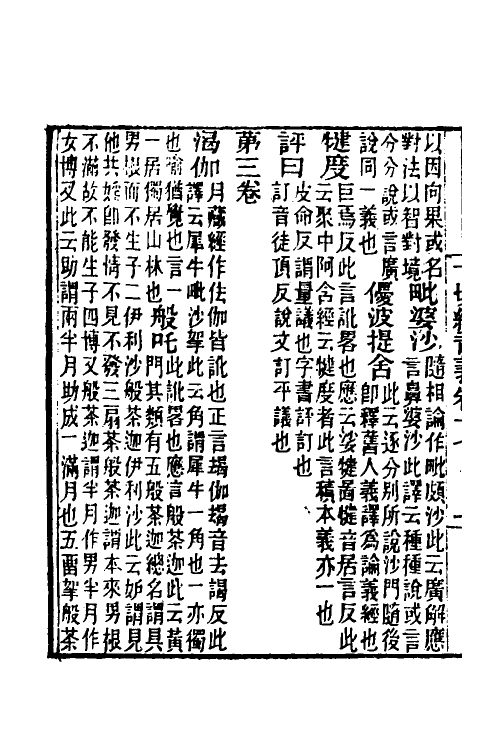 以因向果或名毗婆沙隨相論作毗頗沙此云廣解應
對法以智對境言鼻婆沙此譯云種種說或言
分分說或言廣優波提舍此云逐分別所說沙門隨後
說同一義也即釋舊人義譯為論義經也
犍度巨焉反此言訛畧也應云娑犍圖犍音居言反此
云聚中阿含經云犍度者此言稿本義亦一也
評曰皮命反謂量議也字書評訂也
訂音徒頂反說文訂平議也
第三卷
渴伽月藏經作佉伽皆訛也正言朅伽朅音去謁反此
譯云犀牛毗沙拏此云角謂犀牛一角也一亦獨
也喻猶覺也言一般吒此訛畧也應言般茶迦此云黃
一居獨居山林也門其類有五般茶迦總名謂具
男根而不生子二伊利沙般茶迦伊利沙此云妬謂見
他共婬即發情不見不發三扇茶般茶迦謂本來男根
不滿故不能生子四博叉般茶迦謂半月作男半月作
女博叉此云助謂兩半月助成一滿月也五畱拏般茶